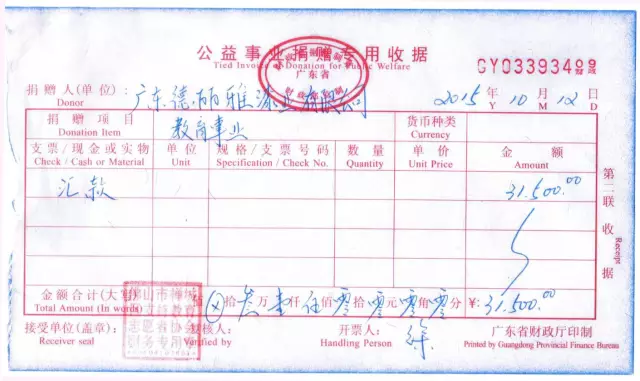 公益事业捐赠专用收据
Tied Invoice of Donation for Public Welfare
广东省
GY03393409
捐赠人(单位): 广东德丽雅漆业有限公司 2015年10月12日
Donor Y M D
捐赠项目 教育事业 货币种类
Donation Item Currency
支票/现金或实物 单位 规格/支票号码 数量 单价 金额
Check / Cash or Material Unit Specification / Check No. Quantity Unit Price Amount
汇款 31,500.00
第二联 收据
Receipt
金额合计(大写) 佰 ⊗ 拾 叁 万 壹 仟 伍 佰 零 拾 零 元 零 角 零 分 ¥: 31,500.00
Total Amount (In words)
接受单位(盖章): 复核人: 开票人: 徐 广东省财政厅印制
Receiver seal Verified by Handling Person Printed by Guangdong Provincial Finance Bureau